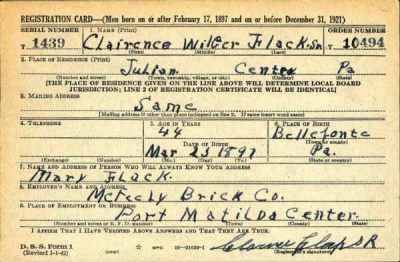 REGISTRATION CARD—(Men born on or after February 17, 1897 and on or before December 31, 1921)
SERIAL NUMBER 1. NAME (Print) ORDER NUMBER
T 1439 Clairence Wilber Flack Sr. T 10494
(First) (Middle) (Last)
2. PLACE OF RESIDENCE (Print)
Julian Centre Pa
(Number and street) (Town, township, village, or city) (County) (State)
[THE PLACE OF RESIDENCE GIVEN ON THE LINE ABOVE WILL DETERMINE LOCAL BOARD
JURISDICTION; LINE 2 OF REGISTRATION CERTIFICATE WILL BE IDENTICAL]
3. MAILING ADDRESS
Same
[Mailing address if other than place indicated on line 2. If same insert word same]
4. TELEPHONE 5. AGE IN YEARS 6. PLACE OF BIRTH
44 Bellefonte
DATE OF BIRTH (Town or county)
Mar 25 1897 Pa.
(Exchange) (Number) (Mo.) (Day) (Yr.) (State or country)
7. NAME AND ADDRESS OF PERSON WHO WILL ALWAYS KNOW YOUR ADDRESS
Mary Flack.
8. EMPLOYER'S NAME AND ADDRESS
McFeely Brick Co.
9. PLACE OF EMPLOYMENT OR BUSINESS
Port Matilda Center.
(Number and street or R. F. D. number) (Town) (County) (State)
I AFFIRM THAT I HAVE VERIFIED ABOVE ANSWERS AND THAT THEY ARE TRUE.
D. S. S. Form 1
(Revised 1-1-42) (over) (Registrant's signature)